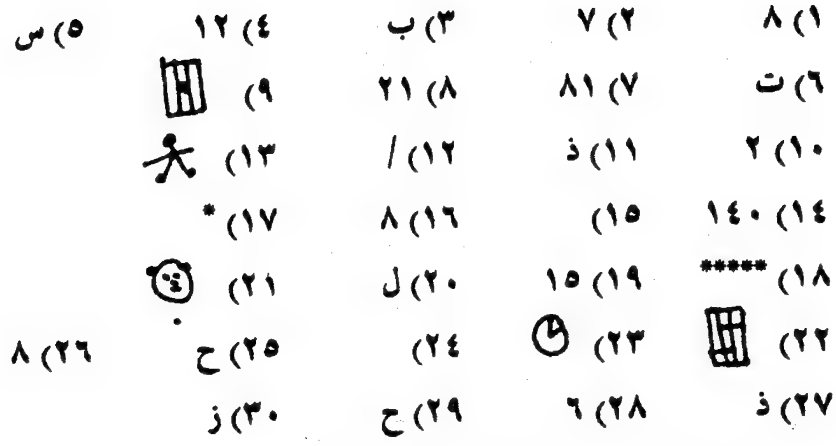 ١) ٨ ٢) ٧ ٣) ب ٤) ١٢ ٥) س
٦) ت ٧) ٨١ ٨) ٢١ ٩)
١٠) ٢ ١١) ذ ١٢) / ١٣)
١٤) ١٤٠ ١٥) ١٦) ٨ ١٧) *
١٨) ***** ١٩) ١٥ ٢٠) ل ٢١)
٢٢) ٢٣) ٢٤) ٢٥) ح ٢٦) ٨
٢٧) ذ ٢٨) ٦ ٢٩) ح ٣٠) ز